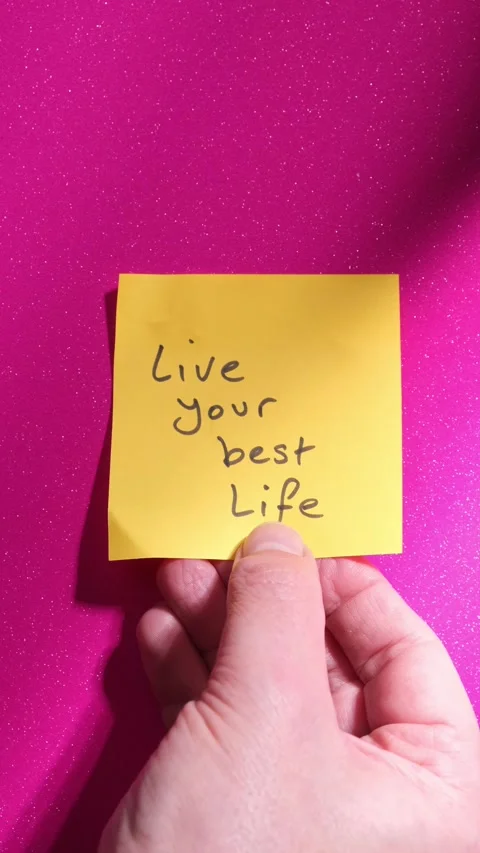 Live
your
best
Life